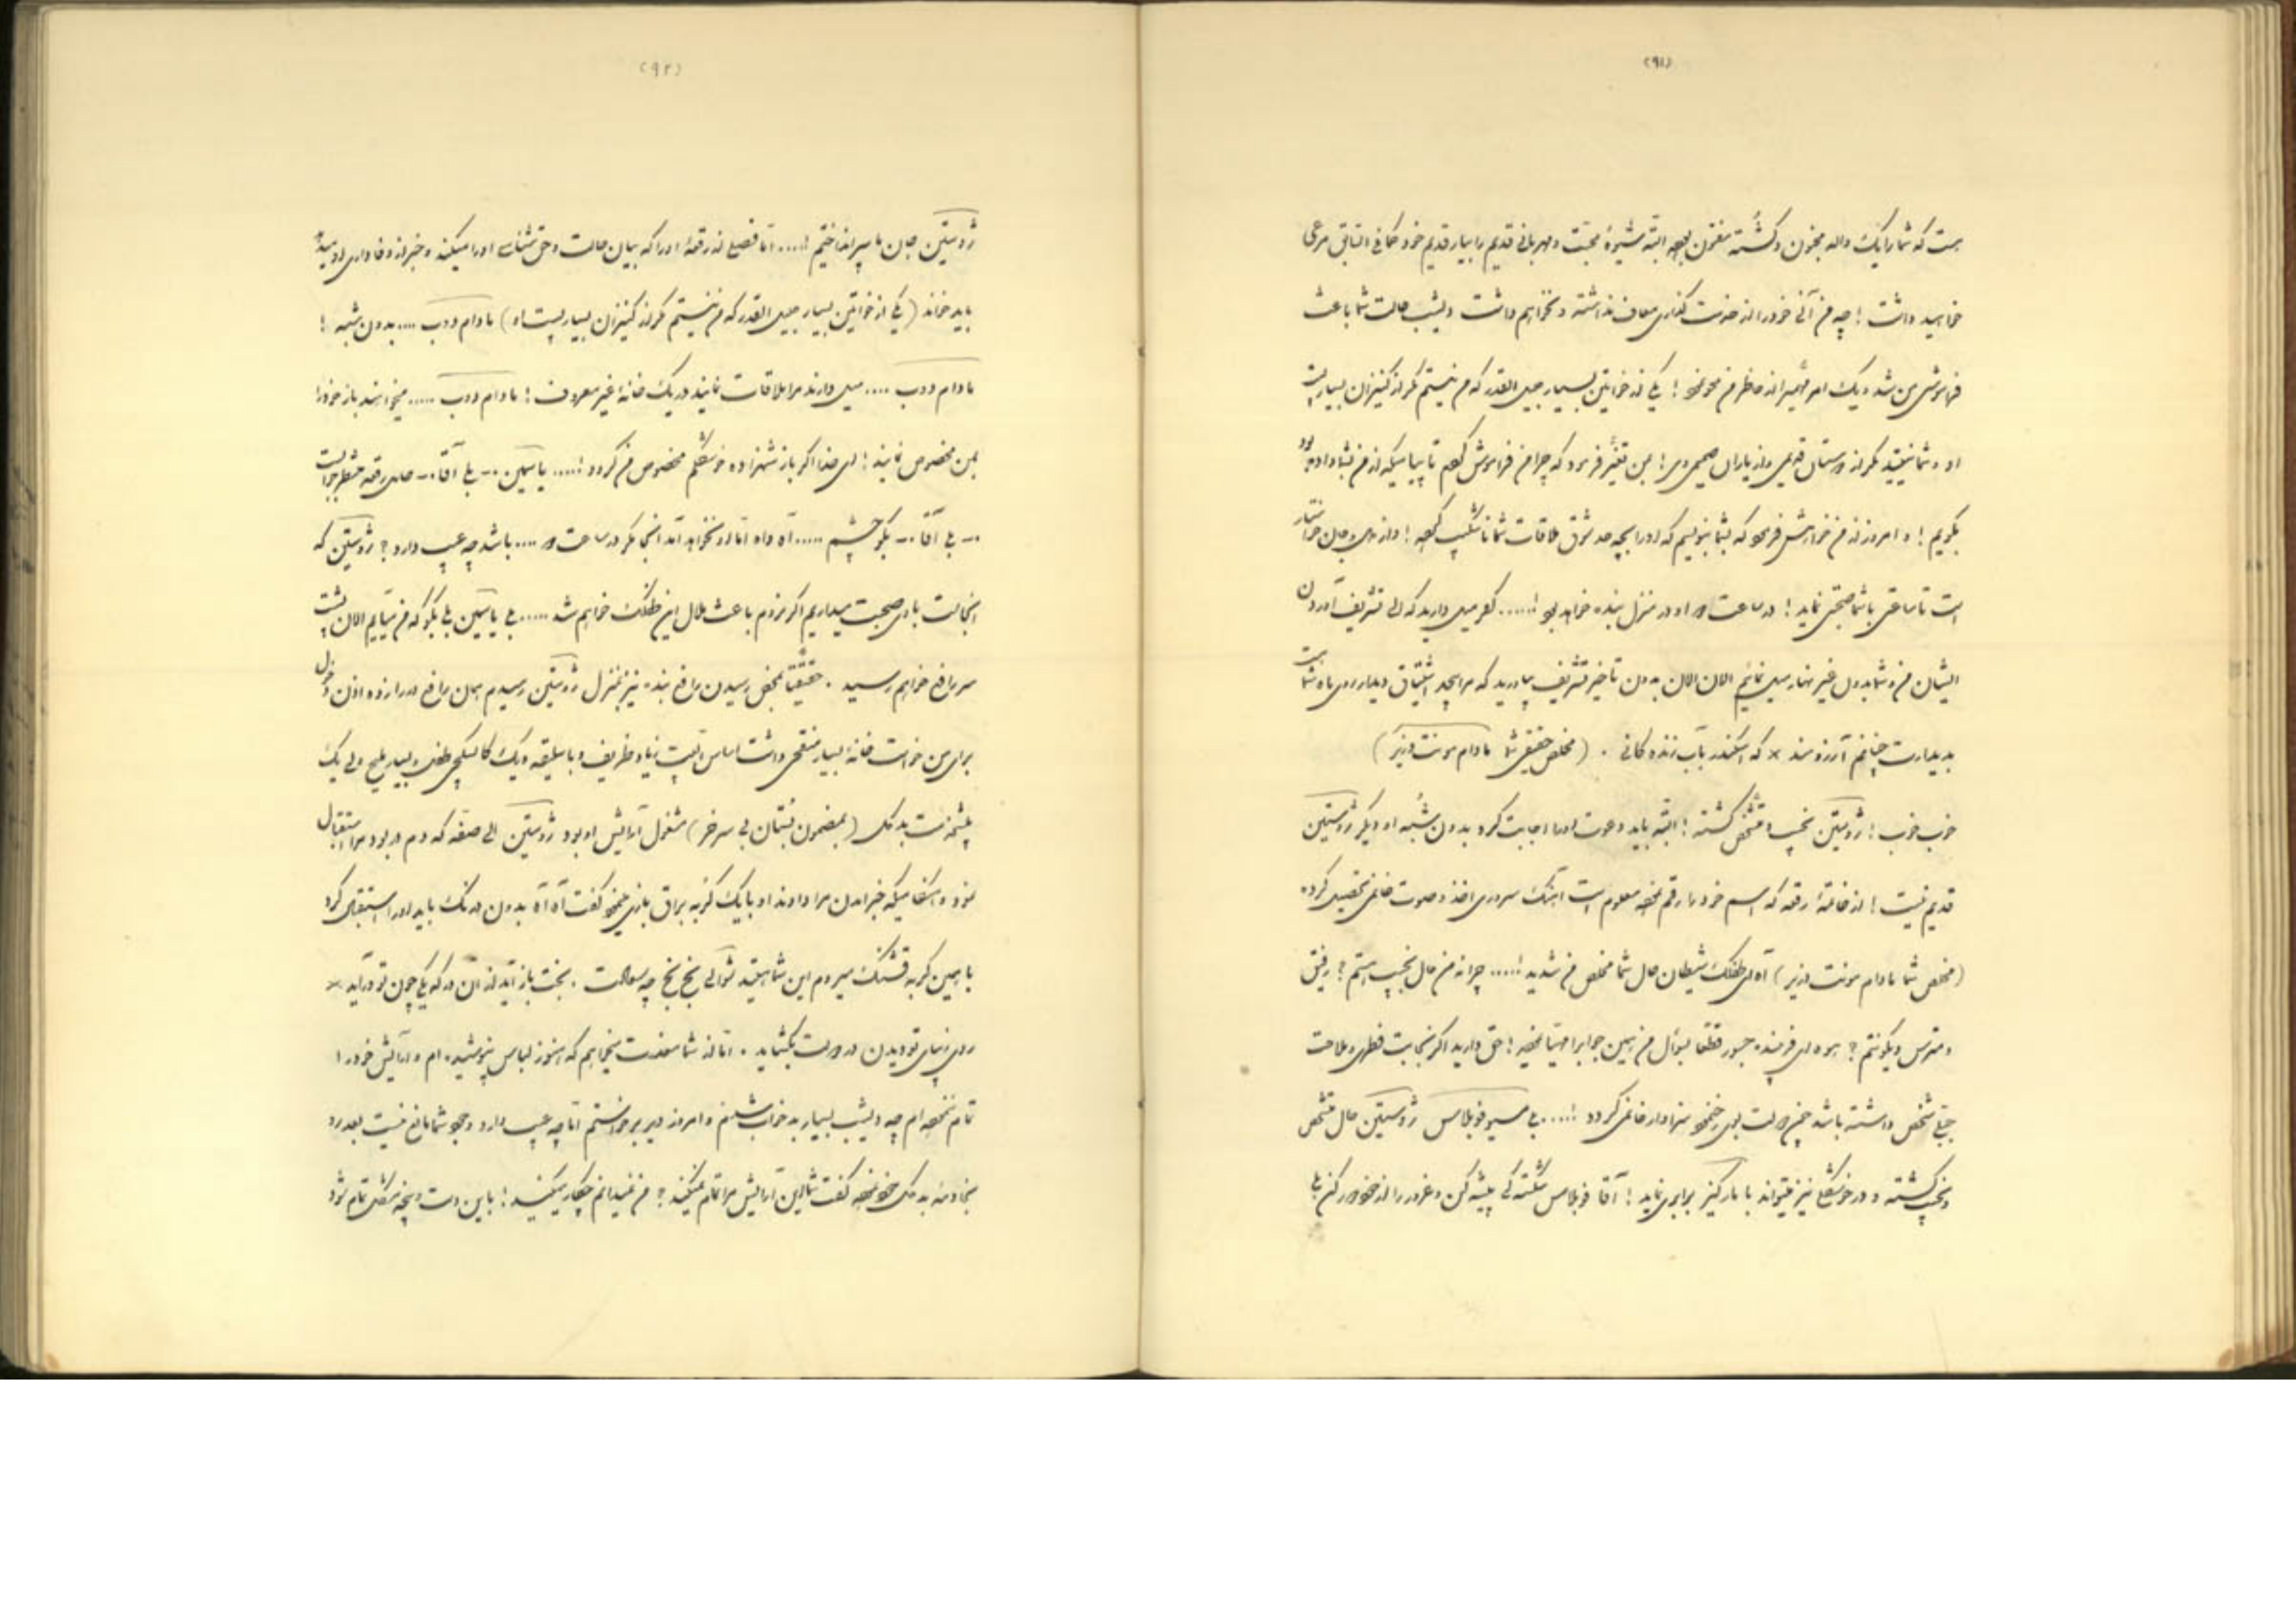 (۹۱)
هست که شما را یک واله مجنون و کشته مفتون بوده البته شیوهٔ محبت و مهربانی قدیم را بیار قدیم خود کما فی السابق مرعی
خواهید داشت! چه من آنی خود را از خدمت گذاری معاف نداشته و نخواهم داشت دیشب حالت شما باعث
فراموشی من شد و یک امر از خاطر من محو نمود! یکی از خواتین بسیار جلیل القدر که من نیستم مگر از کنیزان بسیار پست
او و شما نیستید مگر از دوستان قدیمی و از یاران صمیمی وی! بمن تغیّر فرمود که چرا من فراموش کردم تا پیامیکه از من بشما داده بود
بگویم! و امروز از من خواهش فرمود که بشما بنویسم که او را بچه حد شوق ملاقات شما ناشکیب کرده! و از دل و جان خواستار
است تا ساعتی با شما صحبتی نماید! در ساعت او در منزل بنده خواهد بود !..... میل دارید که الی تشریف آوردن
ایشان من و شما بدون غیر نهار میل نمائیم الان الان بدون تأخیر تشریف بیاورید که مرا بیحد اشتیاق دیدار روی ماه شما است
بدیدارت چنانم آرزومند × که اسکندر بآب زندگانی . (مخلص حقیقی شما مادام مونت وزیر)
خوب خوب! ژوستین نجیب و متشخص گشته! البته باید دعوت او را اجابت کرد بدون شبهه او دیگر ژوستین
قدیم نیست! از خاتمهٔ رقعه که اسم خود را رقم نموده معلوم است آهنگ سروری اخذ و صوت خانمی تحصیل کرده
(مخلص شما مادام مونت وزیر) آه ای طفلک شیطان حال شما مخلص من شدید !..... چرا نه من حال نجیب هستم؟ رفیق
و مترس و یکونتم؟ فرمنده جسور قطعاً بسؤال من همین جواب را مهیا نموده! حق دارید اگر نجابت فطری و ملاحت
جبلی شخص داشته باشد سزاوار خانمی گردد !..... بلی مسیو فوبلاس ژوستین حال متشخص
و نجیب گشته و در خوشگلی نیز میتواند با مارکیز برابری نماید! آقا فوبلاس شکستگی پیشه کن و غرور را از خود دور کن بلی
(۹۲)
ژوستین جان ما سپر انداختیم !.... اما فصلی از رقعهٔ او را که بیان حالت و حق شناسی او را میکند و خبر از وفاداری او میدهد
باید خواند (یکی از خواتین بسیار جلیل القدر که من نیستم مگر از کنیزان بسیار پست او) مادام دوب .... بدون شبهه !
مادام دوب .... میل دارند مرا ملاقات نمایند در یک خانهٔ غیر معروف! مادام دوب ..... میخواهند باز خود را
بمن مخصوص نمایند! ای خدا اگر باز شهزاده خوشگلم مخصوص من گردد !..... یاسمین .- بلی آقا .- حامل رقعه منتظر جواب است
.- بلی آقا .- بگو چشم ..... آه واه اما او نخواهد آمد آنجا مگر در ساعت .... باشد چه عیب دارد؟ ژوستین که
آنجاست با وی صحبت میداریم اگر نروم باعث ملال این طفلک خواهم شد ..... بلی یاسمین بلی بگو که من میآیم الان پشت
سر واقع خواهم رسید . حقیقتاً بمحض رسیدن رافع بنده نیز بمنزل ژوستین رسیدم همان رافع در را زده اذن دخول
برای من خواست خانهٔ بسیار منقحی داشت اساس البیت زیاد ظریف و با سلیقه و یک کالسکچی طفل و بسیار ملیح ولی یک
پیشخدمت بدگل (بمضمون بستان بی سر خر) مشغول آرایش او بود ژوستین الی صفه که دم در بود مرا استقبال
نمود هنگامیکه خبر آمدن مرا دادند او با یک گربه براق بازی مینمود گفت آه آه بدون درنگ باید او را استقبال کرد
با همین گربه قشنگ میروم این شما هستید شوالی بخ بخ چه سعادت . بخت باز آید از آن در که یکی چون تو درآید ×
روی زیبای تو دیدن در دولت بگشاید . اما از شما معذرت میخواهم که هنوز لباس نپوشیده ام و آرایش خود را
تمام ننموده ام چه دیشب بسیار بد خواب شدم و امروز دیر برخواستم اما چه عیب دارد وجود شما مانع نیست بعد رو
بخادمهٔ بدگل خود نموده گفت شما این آرایش مرا تمام نمیکنید؟ من نمیدانم چکار میکنید! باین دست و پنجه مشکل تمام شود